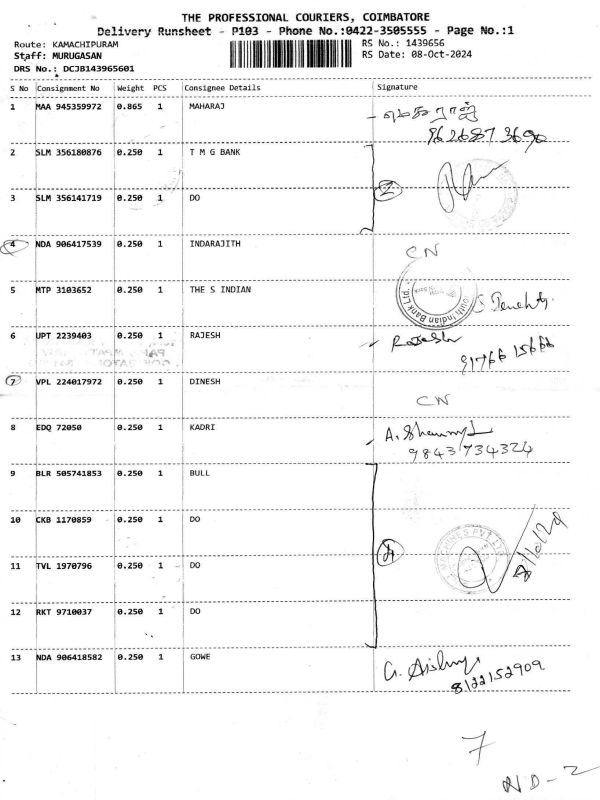 THE PROFESSIONAL COURIERS, COIMBATORE
Delivery Runsheet - P103 - Phone No.:0422-3505555 - Page No.:1
Route: KAMACHIPURAM RS No.: 1439656
Staff: MURUGASAN RS Date: 08-Oct-2024
DRS No.: DCJB143965601
S No Consignment No Weight PCS Consignee Details Signature
1 MAA 945359972 0.865 1 MAHARAJ
2 SLM 356180876 0.250 1 T M G BANK
3 SLM 356141719 0.250 1 DO
2
4 NDA 906417539 0.250 1 INDARAJITH CN
5 MTP 3103652 0.250 1 THE S INDIAN
South Indian Bank Ltd.
6 UPT 2239403 0.250 1 RAJESH Rajesh
7 VPL 224017972 0.250 1 DINESH CN
8 EDQ 72050 0.250 1 KADRI
9843734324
9 BLR 505741853 0.250 1 BULL
10 CKB 1170859 0.250 1 DO
4
MACHINES PVT LTD
8/10/24
11 TVL 1970796 0.250 1 DO
12 RKT 9710037 0.250 1 DO
13 NDA 906418582 0.250 1 GOWE
8122152909
7
ND-2